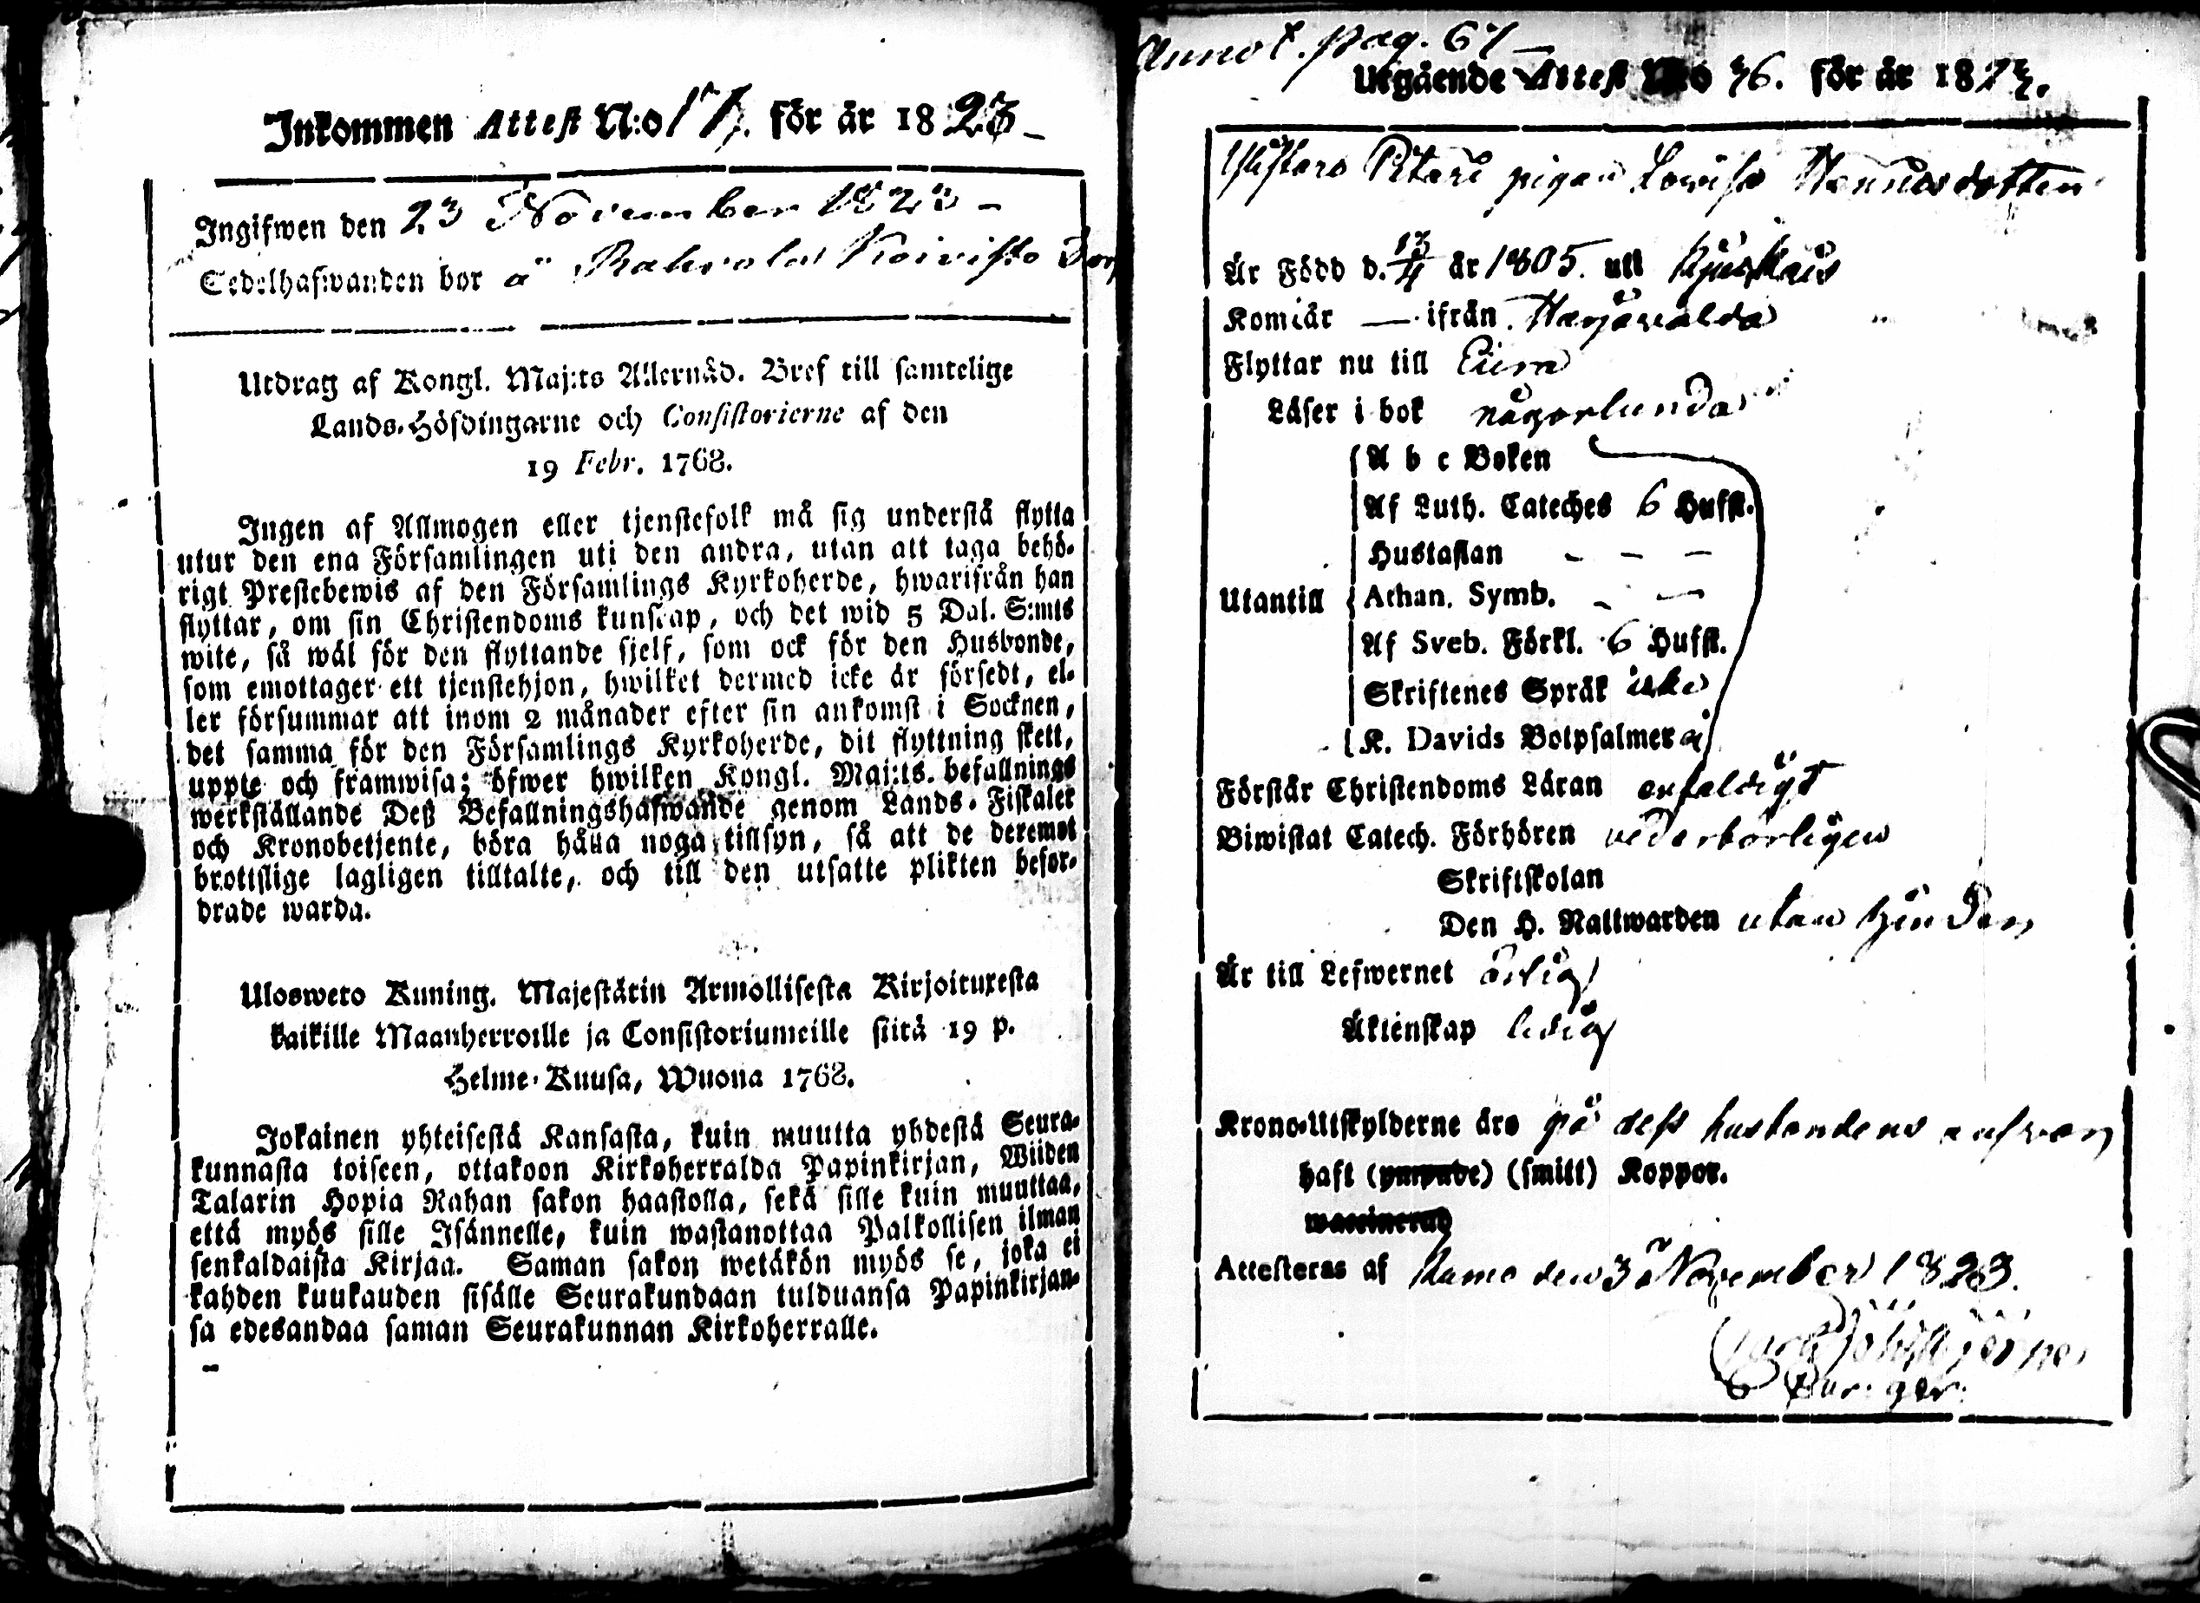 Inkommen Attest N:o 17. för år 1823
Ingifwen den 23 November 1823 –
Sedelhafwanden bor å Koivisto
Utdrag af Kongl. Maj:ts Allernåd. Bref till samtelige
Lands-Höfdingarne och Consistorierne af den
19 Febr. 1768.
Ingen af Allmogen eller tjenstefolk må sig understå flytta
utur den ena Församlingen uti den andra, utan att taga behö-
rigt Prestebewis af den Församlings Kyrkoherde, hwarifrån han
flyttar, om sin Christendoms kunscap, och det wid 5 Dal. S:mts
wite, så wäl för den flyttande sjelf, som ock för den Husbonde,
som emottager ett tjenstehjon, hwilket dermed icke är försedt, el-
ler försummar att inom 2 månader efter sin ankomst i Socknen,
det samma för den Församlings Kyrkoherde, dit flyttning skett,
uppte och framwisa; öfwer hwilken Kongl. Maj:ts. befallnings
werkställande Deß Befallningshafwande genom Lands-Fiskaler
och Kronobetjente, böra hålla noga tillsyn, så att de deremot
brottslige lagligen tilltalte, och till den utsatte plikten befor-
drade warda.
Uloswero Kuning. Majestärin Armollisesta Kirjoituxesta
kaikille Maanherroille ja Consistoriumeille siitä 19 p.
Helme-Kuusa, Wuona 1768.
Jokainen yhteisestä Kansasta, kuin muutta yhdestä Seura-
kunnasta toiseen, ottakoon Kirkoherralda Papinkirjan, Wiiden
Talarin Hopia Rahan sakon haastolla, sekä sille kuin muuttaa,
että myös sille Isännelle, kuin wastanottaa Palkollisen ilman
senkaldaista Kirjaa. Saman sakon wetäkön myös se, joka ei
kahden kuukauden sisälle Seurakundaan tulduansa Papinkirjan-
sa edesandaa saman Seurakunnan Kirkoherralle.
Annot. pag. 67 –
Utgående Attest No 36. för år 1823.
pigan Lovisa
Är Född d. 13/4 år 1805. uti
Kom år — ifrån Harjavalda
Flyttar nu till Eura
Läser i bok någorlunda
A b c Boken
Af Luth. Cateches 6 Hufst.
Hustaflan - - -
Utantill
Athan. Symb. - -
Af Sveb. Förkl. 6 Hufst.
Skriftenes Språk icke
K. Davids Botpsalmer
Förstår Christendoms Läran enfaldigt
Biwistat Catech. Förhören vederbörligen
Skriftskolan
Den H. Nattwarden utan hinder
Är till Lefwernet ärlig
Äktenskap ledig
Krono-Utskylderne äro på dess husbondens ansvar
haft (ymynde) (smitt) Koppor.
waccinerad
Attesteras af Kumo den 3 November 1823.